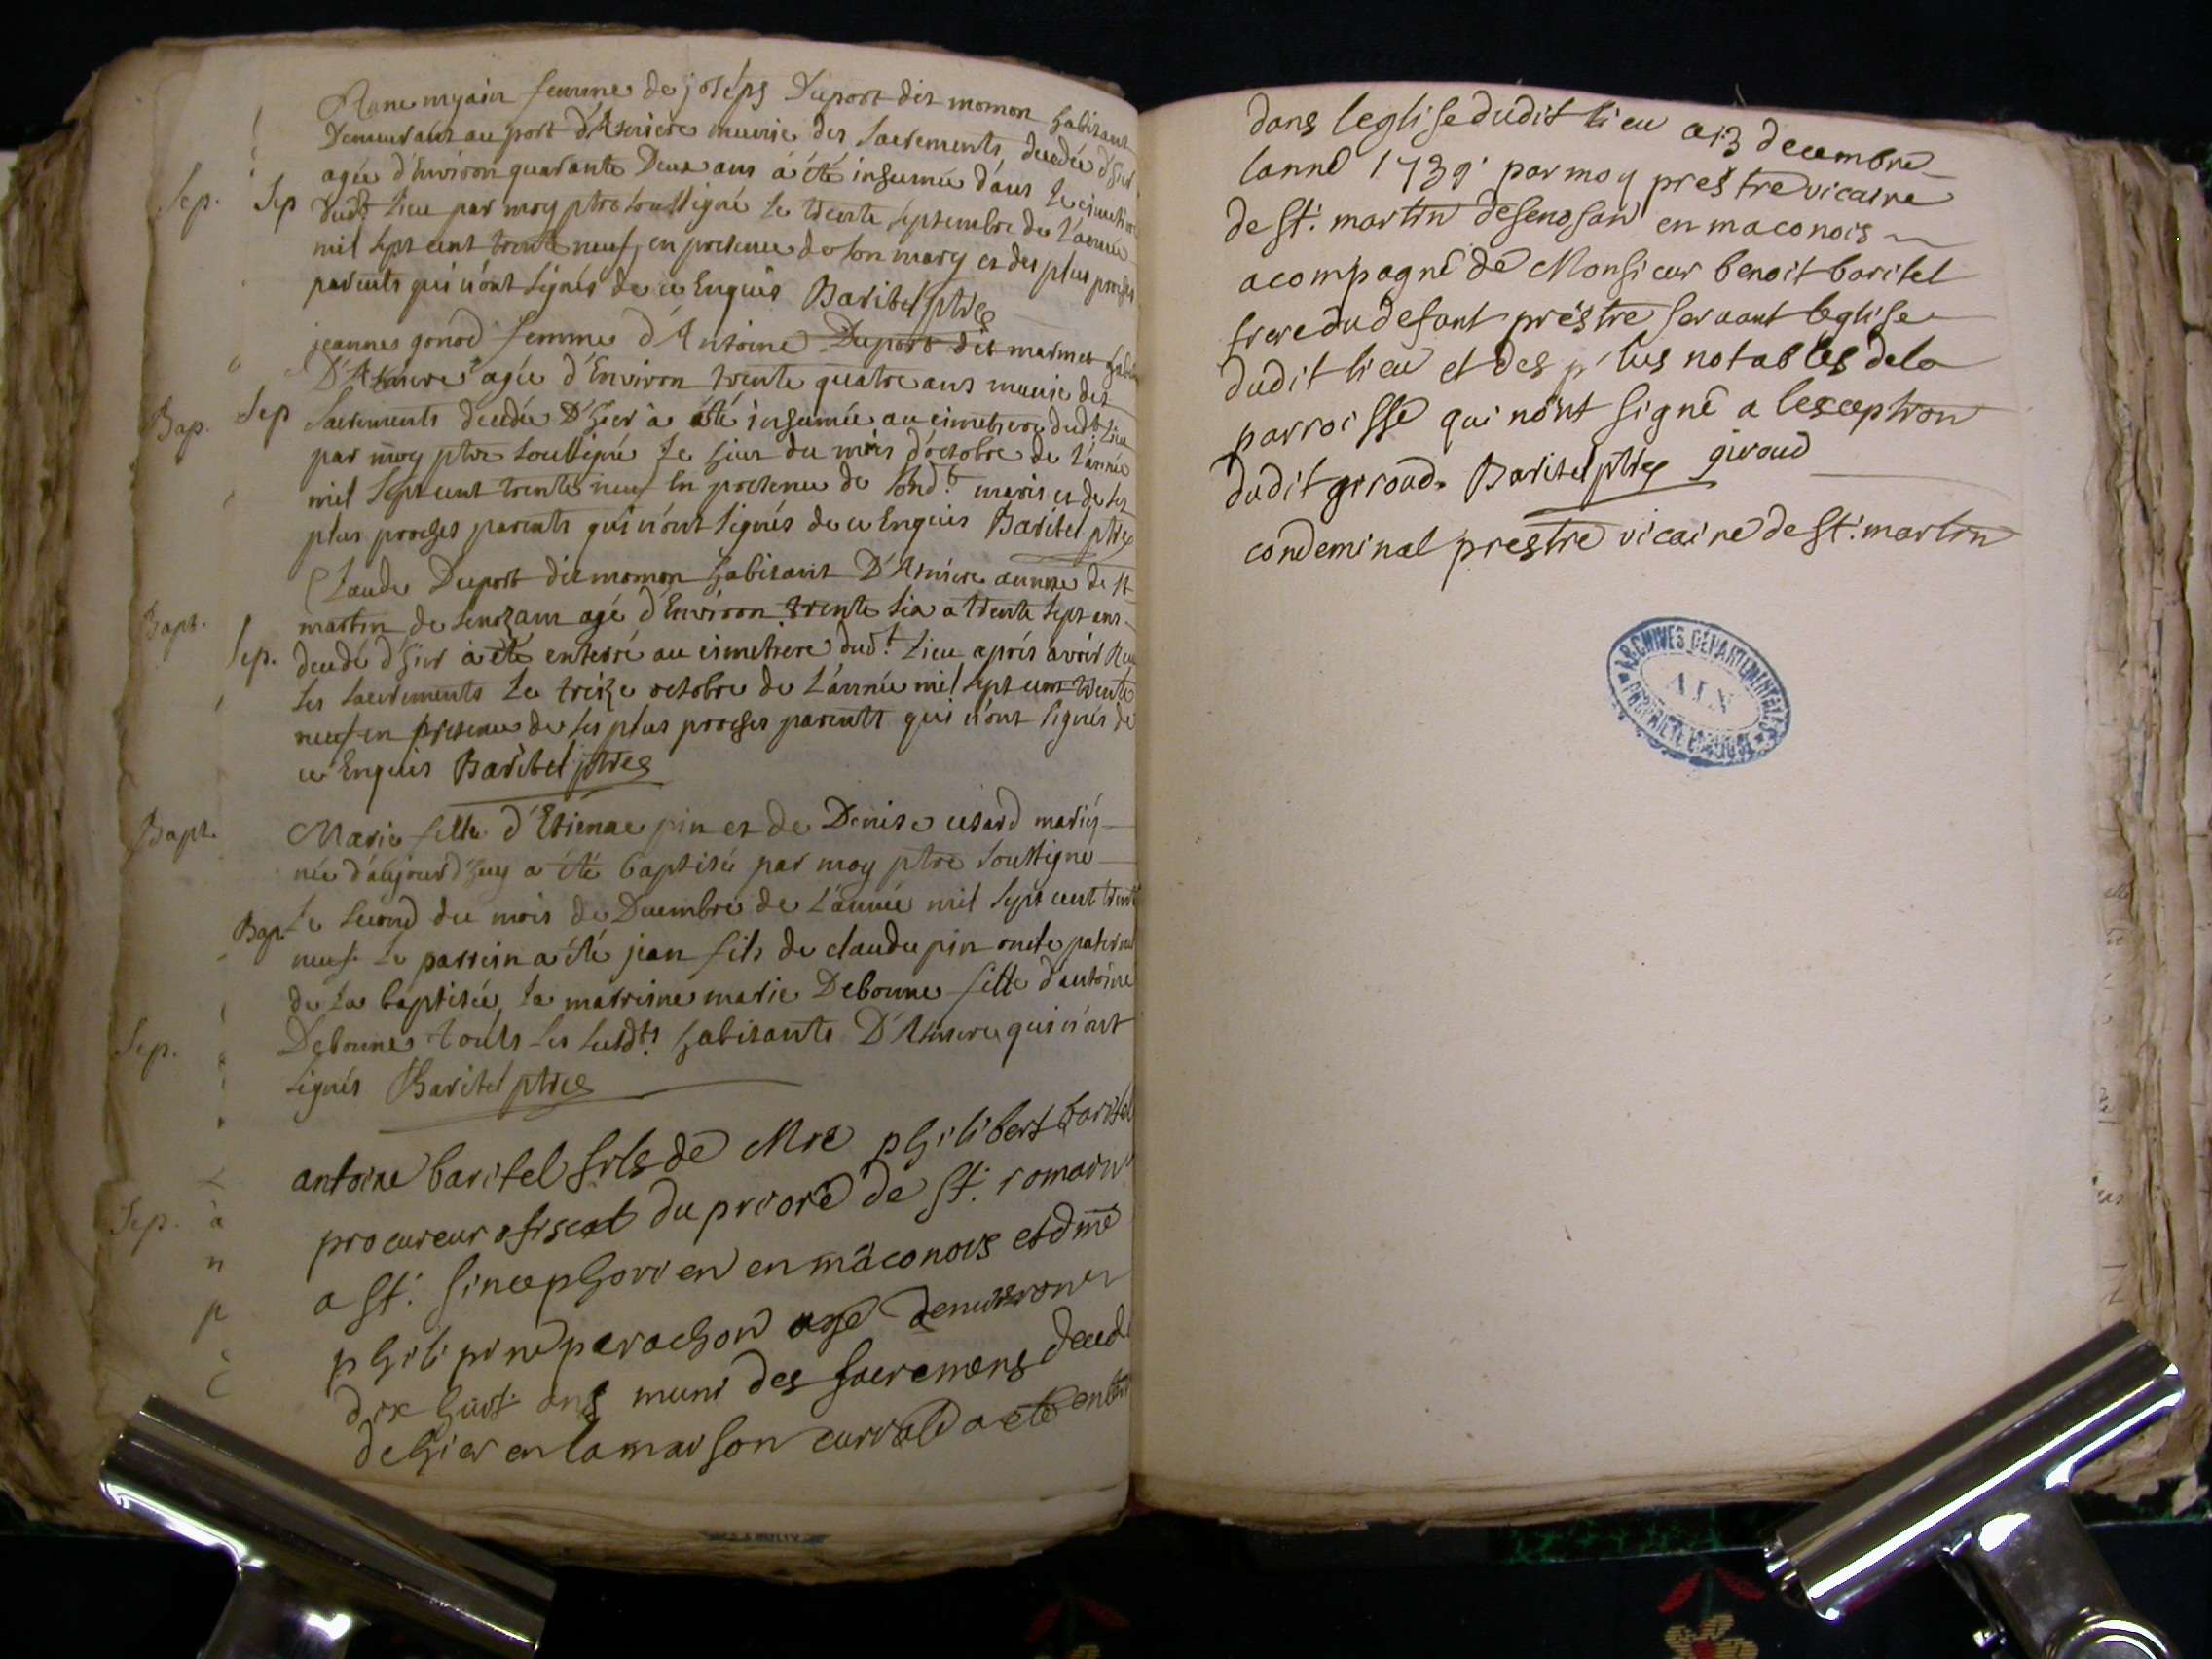 femme de joseps Duport dit momon habitant
Demeurant au port d'Asnieres munie des sacrements, decedée d'hier
agée d'Environ quarante Deux ans à été inhumée dans le cimetiere
Sep. Sep dud.t lieu par moy ptre soussigné le trente septembre de l'année
mil sept cent trente neuf, en presence de son mary et des plus proches
parents qui n'ont signés de ce Enquis Baritel ptre
jeanne gonod femme d'Antoine Duport dit marmet
D'Asniere agée d'Environ trente quatre ans munie des
Bap. Sep sacrements decedée D'hier à été inhumée au cimetiere dud.t lieu
par moy ptre soussigné le huit du mois d'octobre de l'année
mil sept cent trente neuf En presence de sond.t maris et de ses
plus proches parents qui n'ont signés de ce Enquis Baritel ptre
Claude Duport dit momon habitant D'Asniere annexe de st
Bapt. martin de senozam agé d'Environ trente six a trente sept ans
Sep. decedé d'hier à été enterré au cimetiere dud.t Lieu aprés avoir
les sacrements le treize octobre de l'année mil sept cent trente
neuf en presence de ses plus proches parents qui n'ont signés de
ce Enquis Baritel ptre
Bapt. Marie fille d'Etienne pin et de Denise mariés
née d'aujourd'huy a été baptisée par moy ptre soussigné
Bap. le second du mois de Decembre de l'année mil sept cent trente
neuf. le parrein a été jean fils de claude pin oncle paternel
de la baptisée, la marreine marie Debonne fille d'antoine
Sep. Debonne touts les susd.ts habitants D'Asniere qui n'ont
signés Baritel ptre
antoine baritel fils de Mre philibert baritel
procureur ofiscal du prioré de st. romain
Sep. à
a st. sincephorien en mâconois et dme
n
philipine perachon agé denviron
p
dix huit ans muni des sacremens decedé
dehier en la maison curiale a eté enterré
dans leglise dudit lieu a 13 decembre
lanné 1739 par moy prestre vicaire
de st. martin de senosan en maconois
acompagné de Monsieur benoit baritel
frere du defont prêstre servant leglise
dudit lieu et des plus notables de la
parroisse qui nônt signé a lesception
dudit giroud. Baritel ptre giroud
condeminal prestre vicaire de st. martin
ARCHIVES DÉPARTEMENTALES
AIN
PROPRIÉTÉ PUBLIQUE